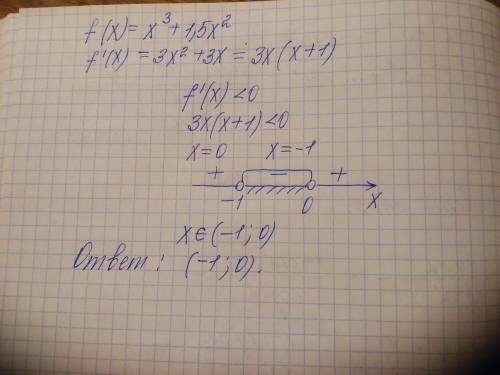 f(x) = x³ + 1,5x²
f'(x) = 3x² + 3x = 3x(x+1)
f'(x) < 0
3x(x+1) < 0
x=0 x=-1
+ − +
-1 0 x
x ∈ (-1; 0)
Ответ: (-1; 0).